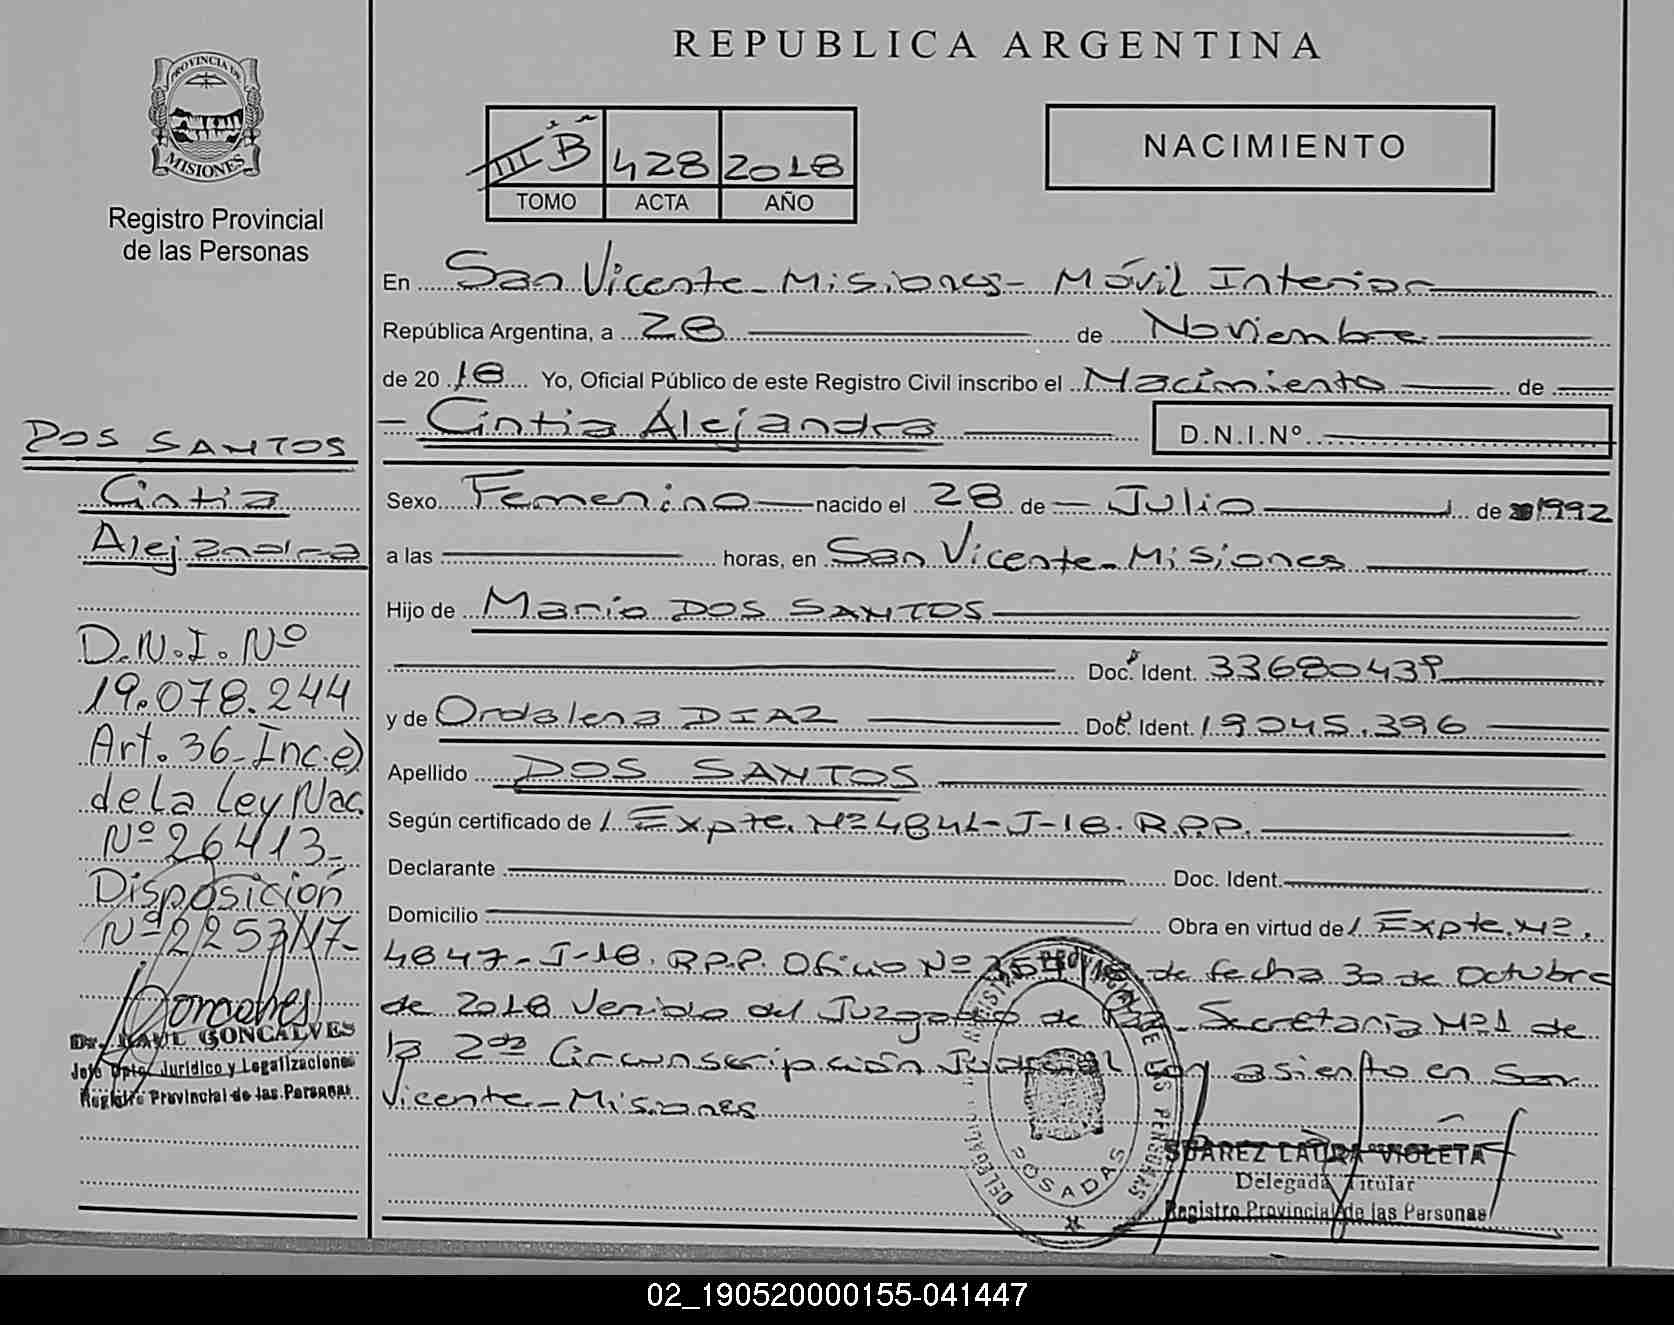 REPUBLICA ARGENTINA
PROVINCIA DE
MISIONES
Registro Provincial
de las Personas
III B 428 2018
TOMO ACTA AÑO
NACIMIENTO
En San Vicente - Misiones - Móvil Interior
República Argentina, a 28 de Noviembre
de 2018 Yo, Oficial Público de este Registro Civil inscribo el Nacimiento de
Cintia Alejandra D.N.I.Nº
Sexo Femenino nacido el 28 de Julio de 1992
a las horas, en San Vicente - Misiones
Hijo de Mario DOS SANTOS
Doc. Ident. 33680439
y de Ordalena DIAZ Doc. Ident. 19045.396
Apellido DOS SANTOS
Según certificado de Expte. Nº 4847-J-18. R.P.P.
Declarante Doc. Ident.
Domicilio Obra en virtud de Expte. Nº
4847-J-18. R.P.P. Oficio Nº de fecha 30 de Octubre
de 2018 Venido del Juzgado de Paz - Secretaria Nº1 de
la 2da Circunscripción Judicial con asiento en San
Vicente - Misiones
DOS SANTOS
Cintia
Alejandra
D.N.I. Nº
19.078.244
Art. 36 - Inc. e)
de la Ley Nac.
Nº 26413 -
Disposición
Nº 2253/17-
Dr. RAUL GONCALVES
Jefe Dpto. Jurídico y Legalizaciones
Registro Provincial de las Personas
POSADAS
SUAREZ LAURA VIOLETA
Delegada Titular
Registro Provincial de las Personas
02_190520000155-041447